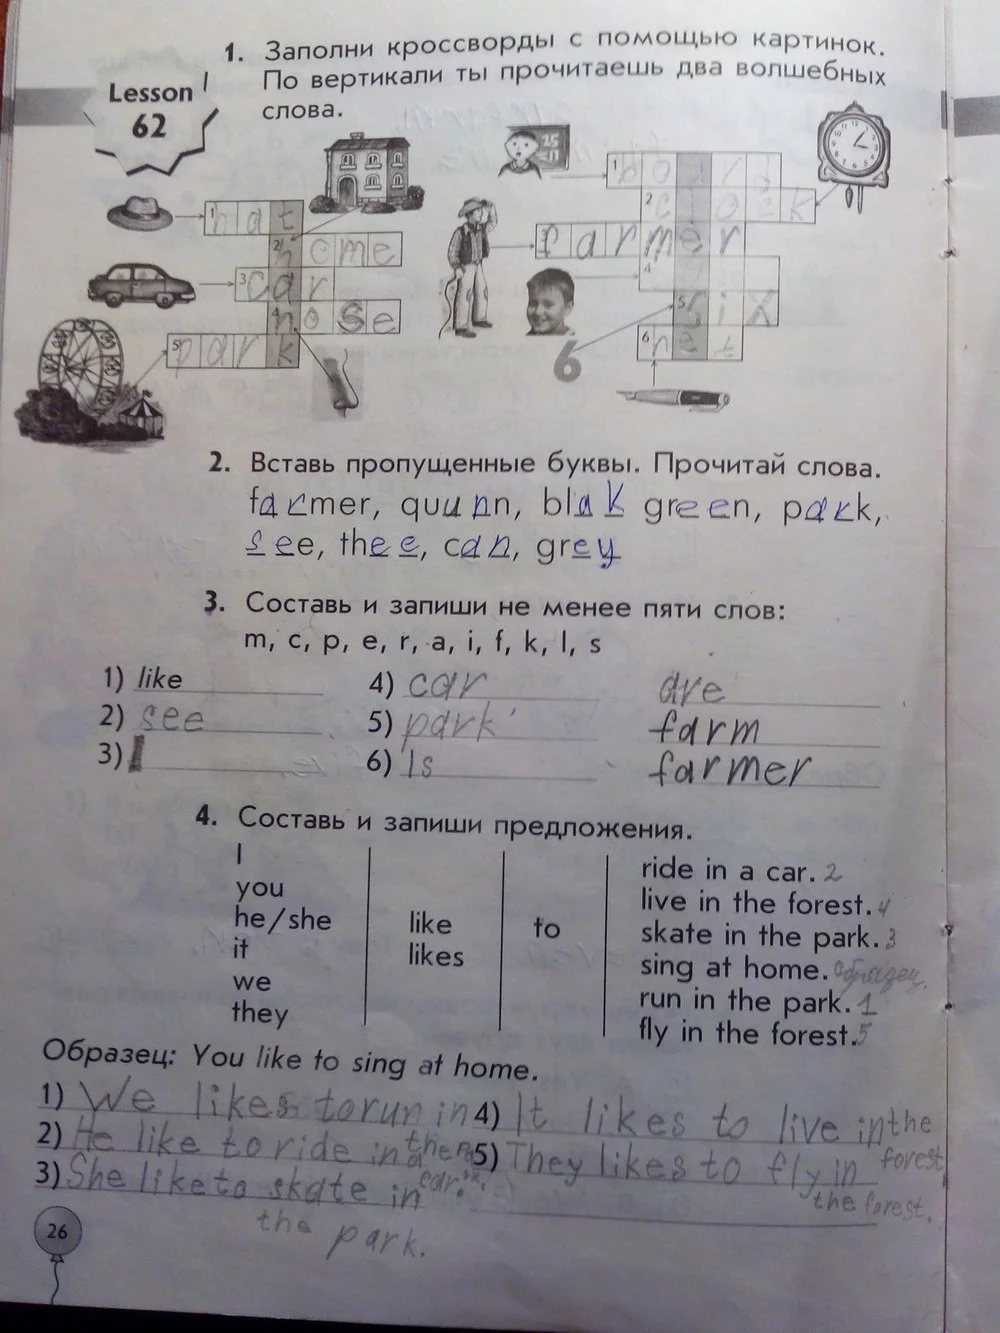 1. Заполни кроссворды с помощью картинок.
По вертикали ты прочитаешь два волшебных
слова.
Lesson
62
1 hat
2 home
3 car
4 nose
5 park
1 board
2 clock
3 farmer
4
5 six
6
6
2. Вставь пропущенные буквы. Прочитай слова.
farmer, quunn, blak green, park,
see, thee, can, grey
3. Составь и запиши не менее пяти слов:
m, c, p, e, r, a, i, f, k, l, s
1) like 4) car are
2) see 5) park farm
3) I 6) Is farmer
4. Составь и запиши предложения.
I
you
he/she
it
we
they
like
likes
to
ride in a car. 2
live in the forest. 4
skate in the park. 3
sing at home. образец.
run in the park. 1
fly in the forest. 5
Образец: You like to sing at home.
1) We likes to run in the
2) He like to ride in a car.
3) She like to skate in
the park.
4) It likes to live in the
forest
5) They likes to fly in
the forest.
26